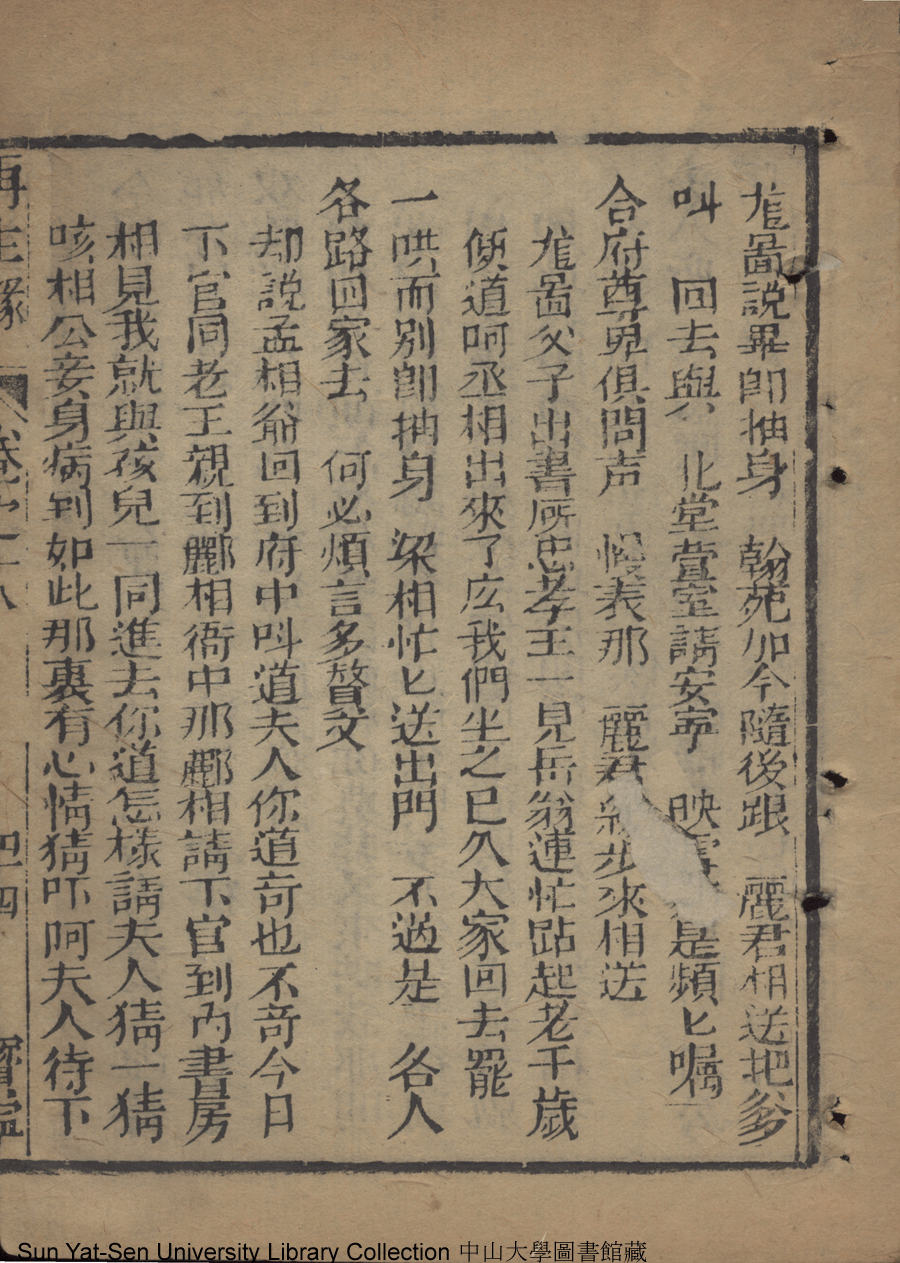 龍啚説畢即抽身 翰苑加今隨後跟 麗君相送把爹
叫 回去與 北堂萱室請安寜 映雪 是頻匕嘱
合府尊卑俱問声 慢表那 麗君 步來相送
龍啚父子出書所忠孝王一見岳翁連忙跕起老千歲
便道呵丞相出來了広我們坐之已久大家回去罷
一哄而别即抽身 梁相忙匕送出門 不過是 各人
各路回家去 何必煩言多贅文
却説孟相爺回到府中呌道夫人你道竒也不竒今日
下官同老王親到酈相衙中那酈相請下官到内書房
相見我就與孩兒一同進去你道怎樣請夫人猜一猜
咳相公妾身病到如此那裏有心情猜吓呵夫人待下
再生縁 卷十八 四 寳寧
Sun Yat-Sen University Library Collection 中山大學圖書館藏